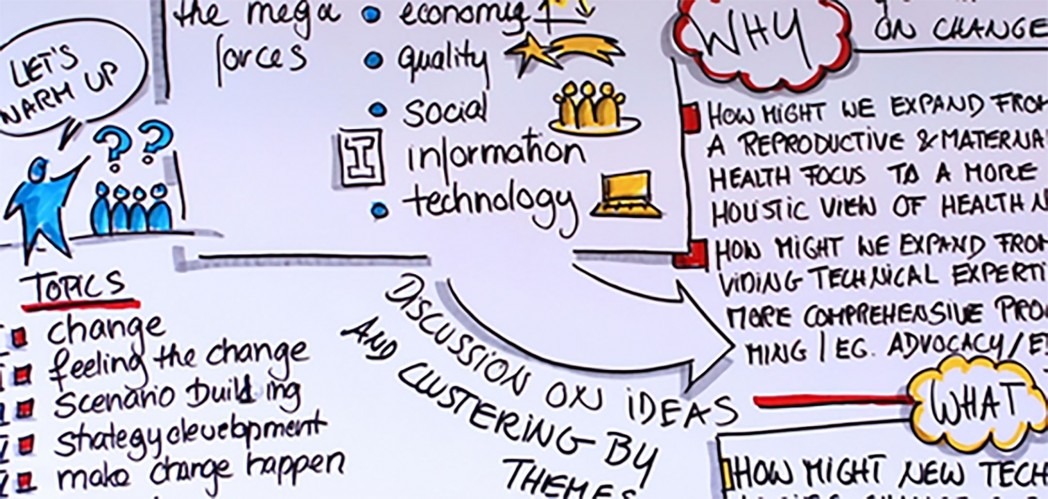 LET'S
WARM UP
the mega
forces
economy
quality
social
information
technology
TOPICS
change
feeling the change
Scenario building
strategy development
make change happen
DISCUSSION ON IDEAS
AND CLUSTERING BY
THEMES
WHY
ON CHANGE
HOW MIGHT WE EXPAND FROM
A REPRODUCTIVE & MATERNA
HEALTH FOCUS TO A MORE
HOLISTIC VIEW OF HEALTH N
HOW MIGHT WE EXPAND FROM
VIDING TECHNICAL EXPERTI
MORE COMPREHENSIVE PRO
MING / EG. ADVOCACY/E
WHAT
HOW MIGHT NEW TECH